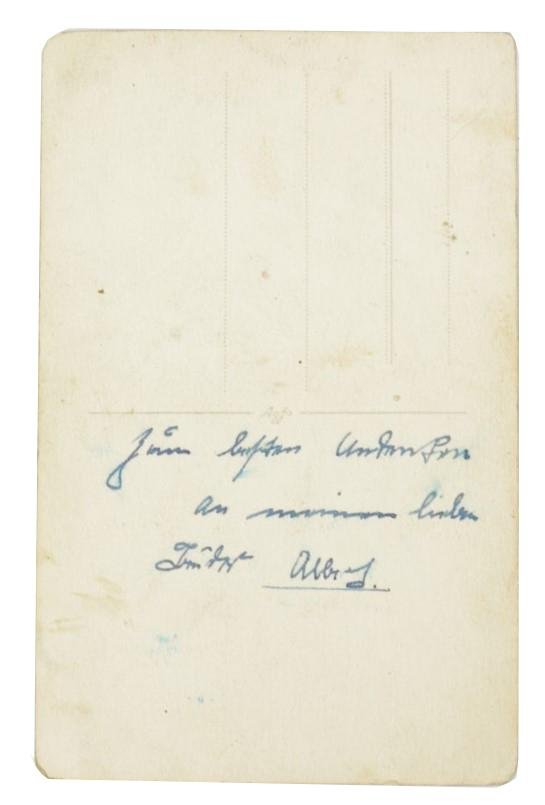 Agfa
Zum besten Andenken
an meinen lieben
Bruder